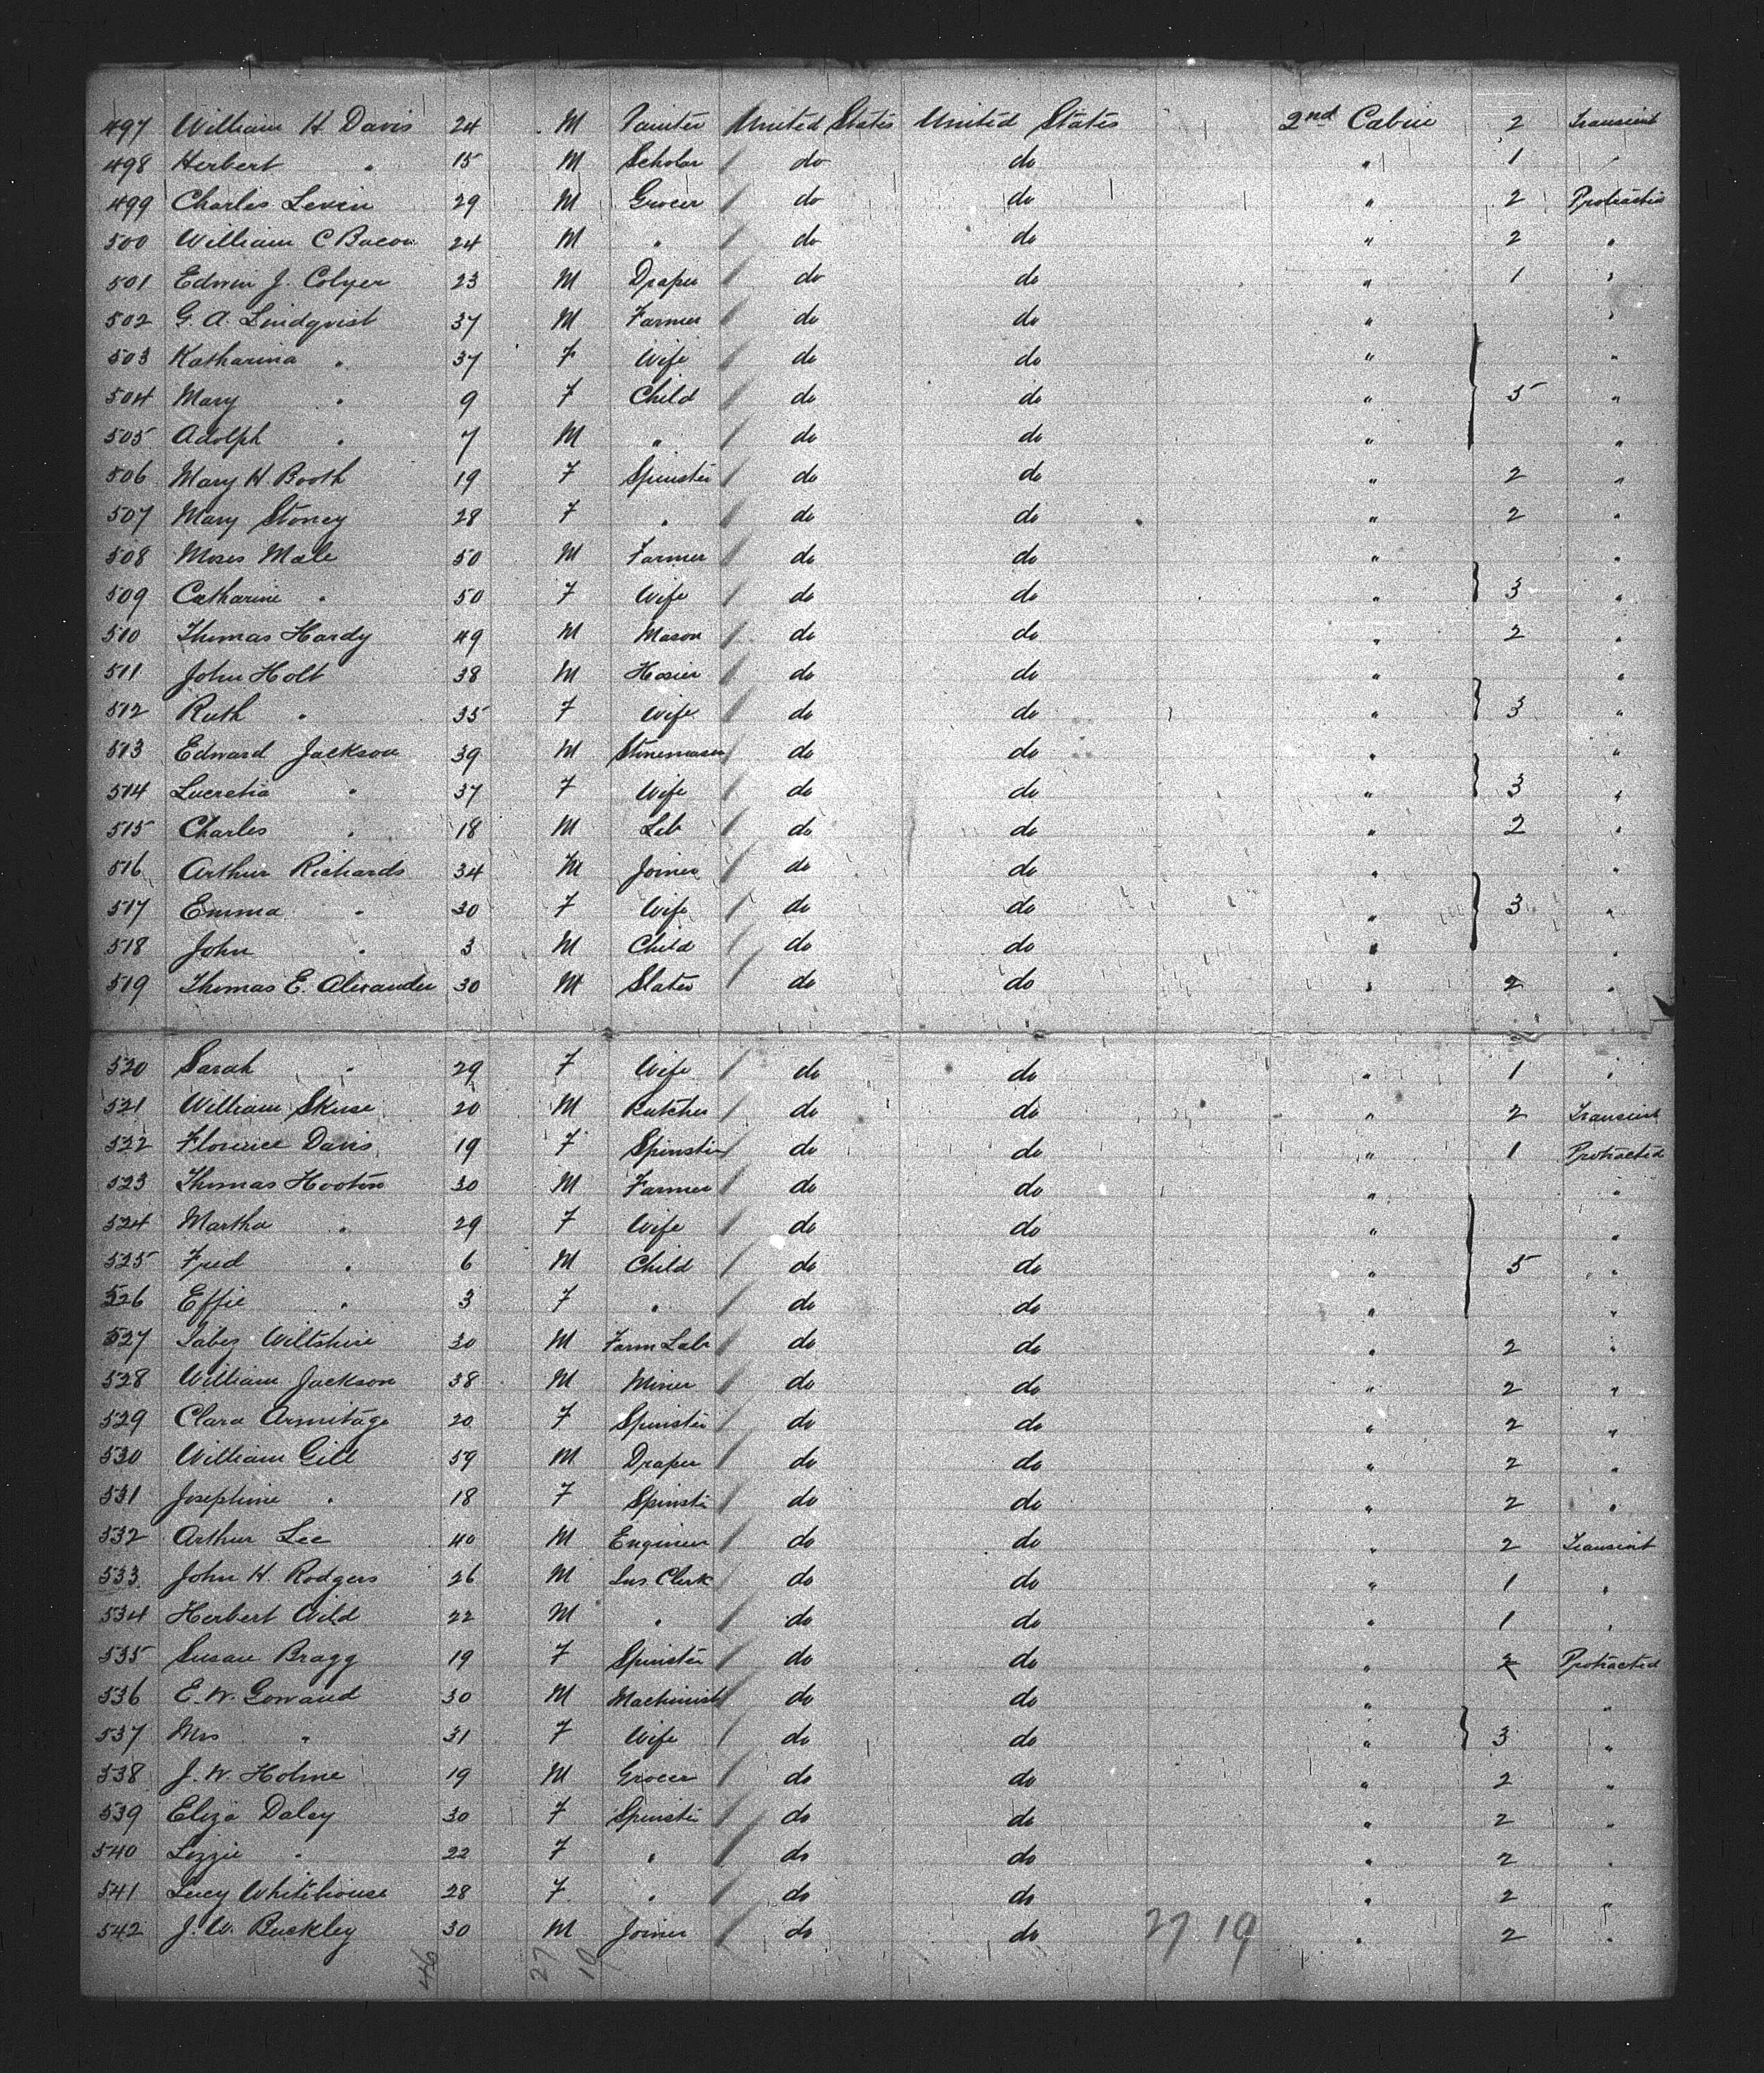 497 William H. Davis 24 M Painter United States United States 2nd Cabin 2 Transient
498 Herbert " 15 M Scholar do do " 1 "
499 Charles Levin 29 M Grocer do do " 2 Protracted
500 William C Bacon 24 M " do do " 2 "
501 Edwin J. Colyer 23 M Draper do do " 1 "
502 G. A. Lindqvist 37 M Farmer do do " "
503 Katharina " 37 F Wife do do " "
504 Mary " 9 F Child do do " 5 "
505 Adolph " 7 M " do do " "
506 Mary H. Booth 19 F Spinster do do " 2 "
507 Mary Stoney 28 F " do do " 2 "
508 Moses Male 50 M Farmer do do " "
509 Catharine " 50 F Wife do do " 3 "
510 Thomas Hardy 49 M Mason do do " 2 "
511 John Holt 38 M Hosier do do " "
512 Ruth " 35 F Wife do do " 3 "
513 Edward Jackson 39 M Stonemason do do " "
514 Lucretia " 37 F Wife do do " 3 "
515 Charles " 18 M Lab do do " 2 "
516 Arthur Richards 34 M Joiner do do " "
517 Emma " 30 F Wife do do " 3 "
518 John " 3 M Child do do " "
519 Thomas E. Alexander 30 M Slater do do " 2 "
520 Sarah " 29 F Wife do do " 1 "
521 William Skuse 20 M Butcher do do " 2 Transient
522 Florence Davis 19 F Spinster do do " 1 Protracted
523 Thomas Hooton 30 M Farmer do do " "
524 Martha " 29 F Wife do do " "
525 Fred " 6 M Child do do " 5 "
526 Effie " 3 F " do do " "
527 Jabez Wiltshire 30 M Farm Lab do do " 2 "
528 William Jackson 38 M Miner do do " 2 "
529 Clara Armitage 20 F Spinster do do " 2 "
530 William Gill 59 M Draper do do " 2 "
531 Josephine " 18 F Spinster do do " 2 "
532 Arthur Lee 40 M Engineer do do " 2 Transient
533 John H. Rodgers 26 M Ins. Clerk do do " 1 "
534 Herbert Wild 22 M " do do " 1 "
535 Susan Bragg 19 F Spinster do do " 2 Protracted
536 E. W. Gowand 30 M Machinist do do " "
537 Mrs " 31 F Wife do do " 3 "
538 J. W. Holme 19 M Grocer do do " 2 "
539 Eliza Daley 30 F Spinster do do " 2 "
540 Lizzie " 22 F " do do " 2 "
541 Lucy Whitehouse 28 F " do do " 2 "
542 J. W. Buckley 30 M Joiner do do 27 19 " 2 "
46 27 19